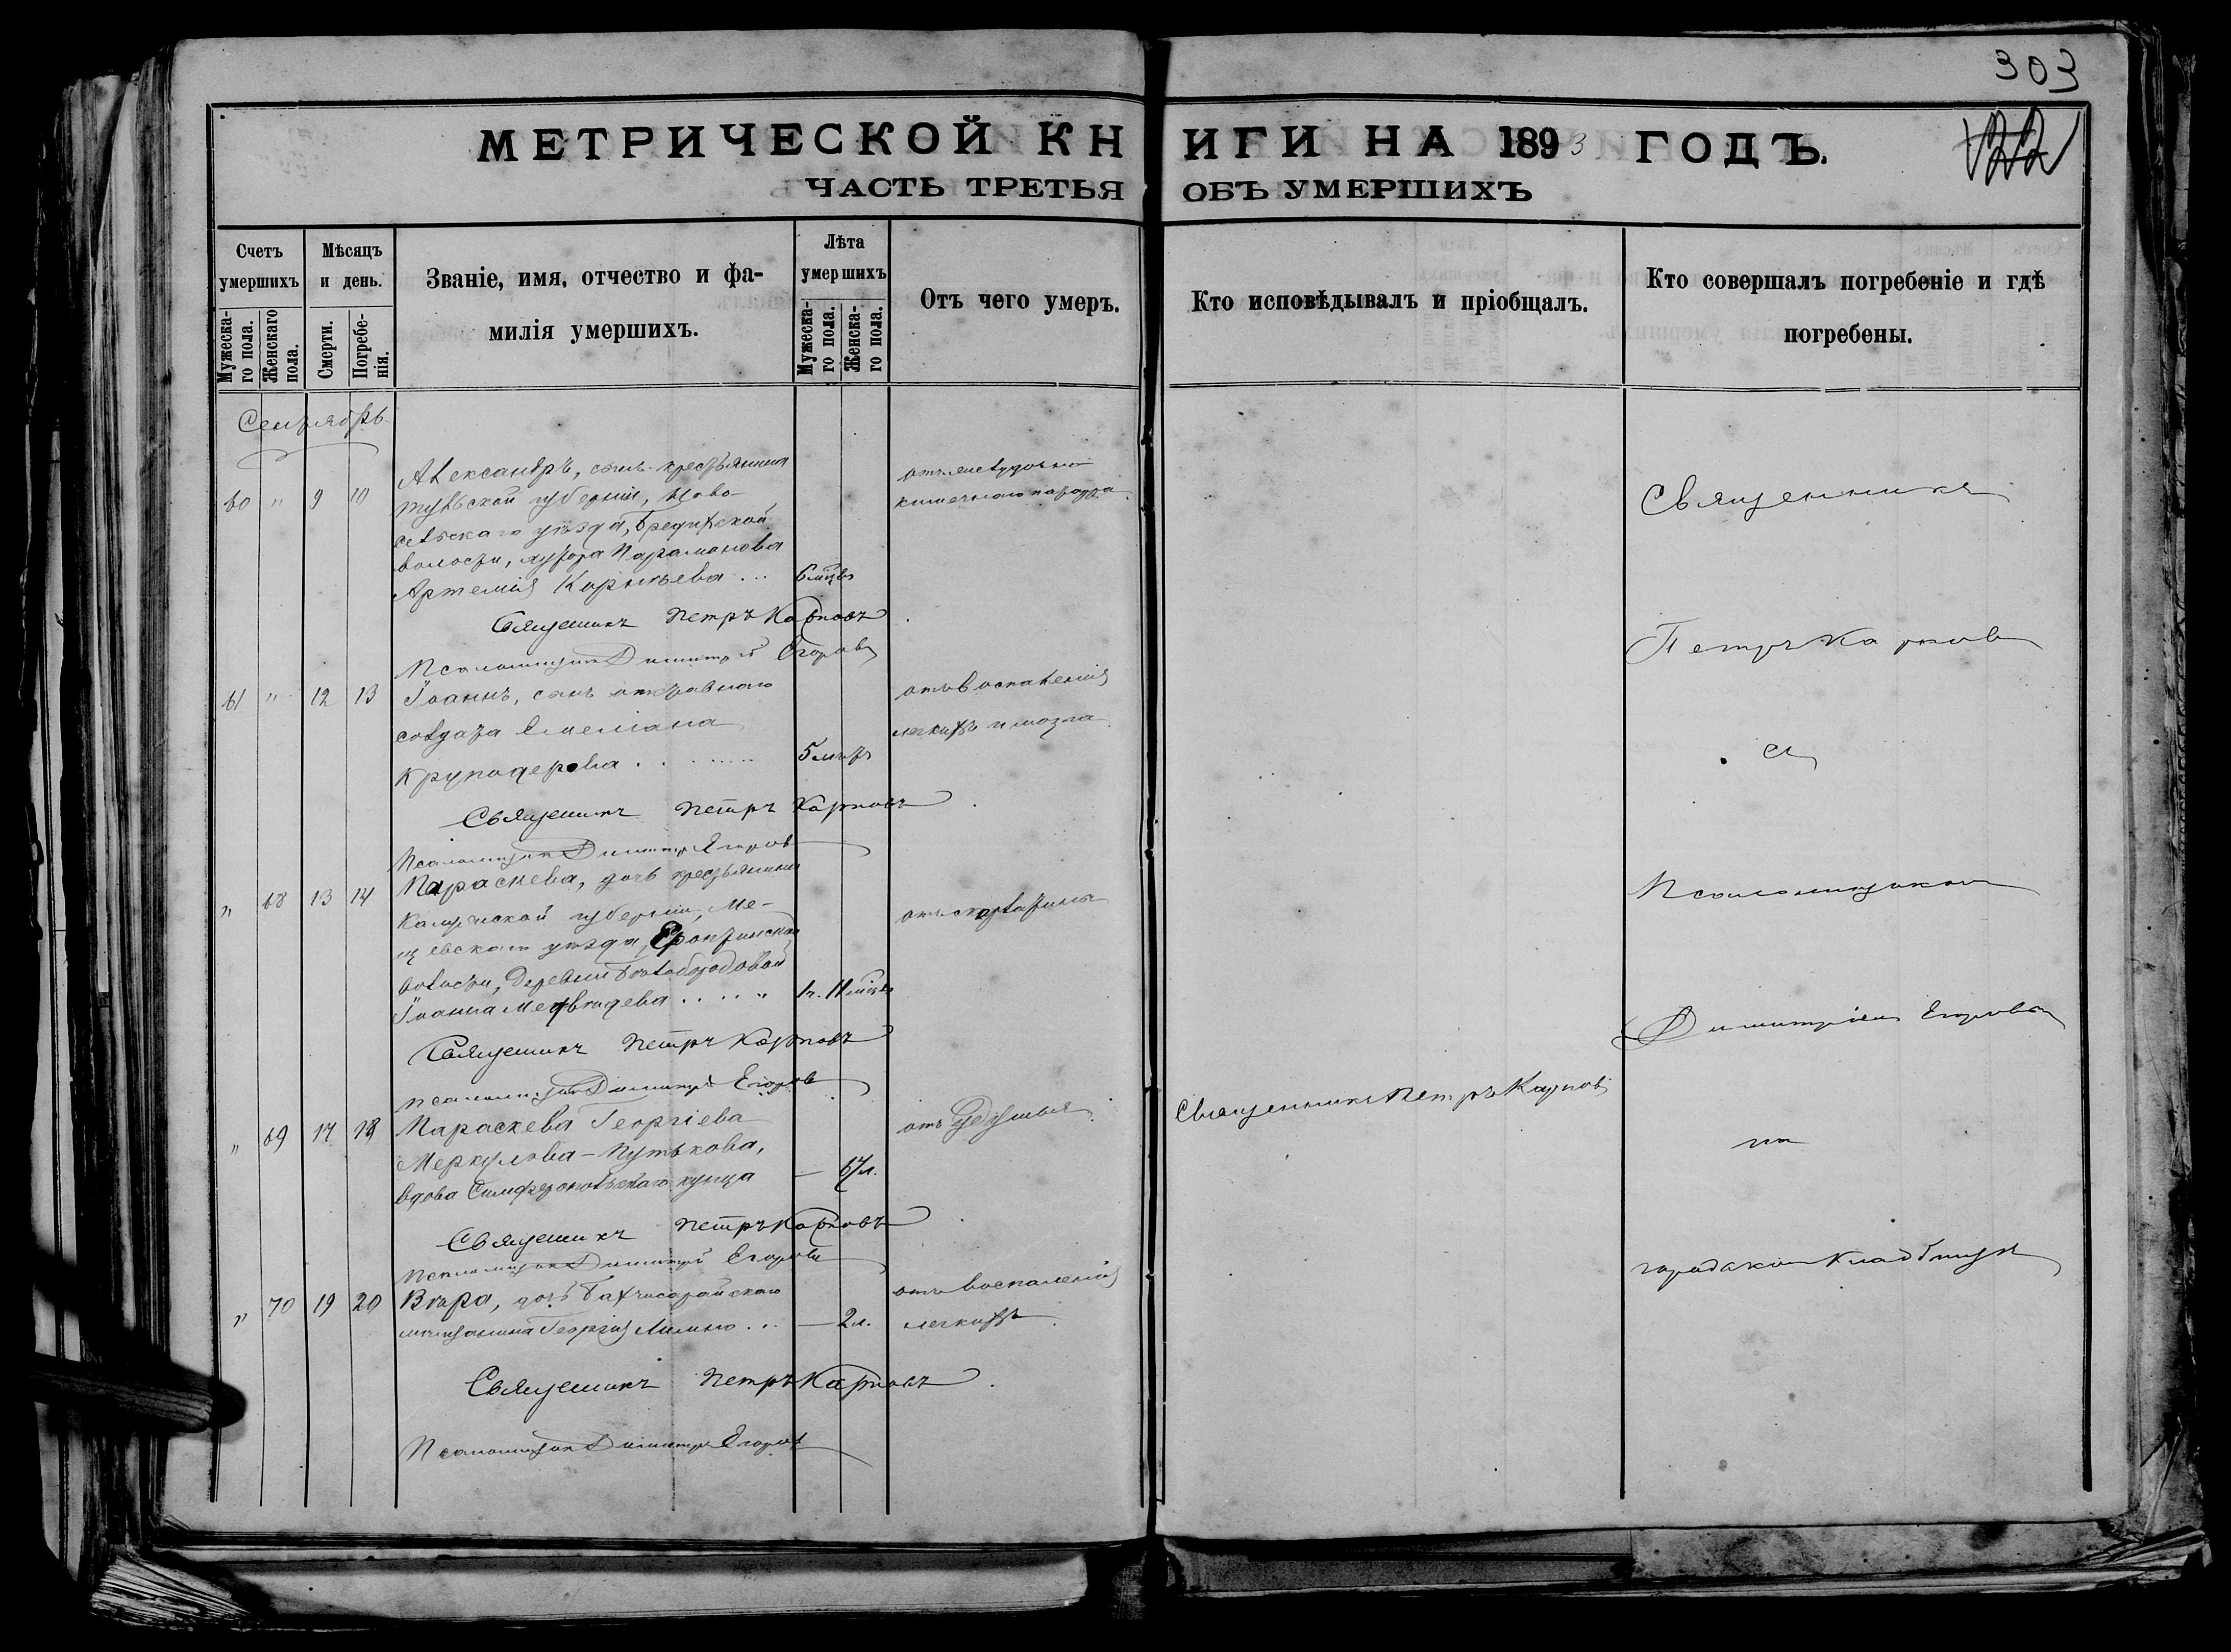 303
МЕТРИЧЕСКОЙ КНИГИ НА 1893 ГОДЪ.
ЧАСТЬ ТРЕТЬЯ ОБЪ УМЕРШИХЪ
Счетъ умершихъ
Мѣсяцъ и день.
Званіе, имя, отчество и фамилія умершихъ.
Лѣта умершихъ
Отъ чего умеръ.
Кто исповѣдывалъ и пріобщалъ.
Кто совершалъ погребеніе и гдѣ погребены.
Мужескаго пола.
Женскаго пола.
Смерти.
Погребенія.
Мужескаго пола.
Женскаго пола.
Сентябрь
Александръ, сынъ крестьянина
отъ желудочно
60 " 9 10 тульской губерніи, Ново-
кишечнаго катарра
Священникъ
сельскаго уѣзда,
волости, хутора Парамонова
Артемія 6 мцвъ
Священникъ Петръ Карповъ
Псаломщикъ Димитрій Егоровъ
Петръ Карповъ
61 " 12 13 Іоаннъ, сынъ отставнаго
отъ воспаленія
солдата Емеліана
легкихъ и мозга
Круподерова 5 лѣтъ
съ
Священникъ Петръ Карповъ
Псаломщикъ Димитр Егоровъ
" 68 13 14 Параскева, дочь крестьянина
Псаломщикомъ
Калужской губерніи, Ме-
отъ скарлатины
щевскаго уѣзда,
волости, деревни Бѣлобородовой
Іоанна Медвѣдева 1 г. 11 мцвъ
Димитріемъ Егоровымъ
Священникъ Петръ Карповъ
Псаломщикъ Димитрій Егоровъ
" 69 17 18 Параскева Георгіева
отъ удушья
Священникъ Петръ Карповъ
на
Меркулова-Путькова,
вдова Симферопольскаго купца — 67 л.
Священникъ Петръ Карповъ
Псаломщикъ Димитрій Егоровъ
городскомъ кладбищѣ
" 70 19 20 Вѣра, дочь Бахчисарайскаго
отъ воспаленія
мѣщанина Георгія — 2 л.
легкихъ
Священникъ Петръ Карповъ
Псаломщикъ Димитр Егоровъ